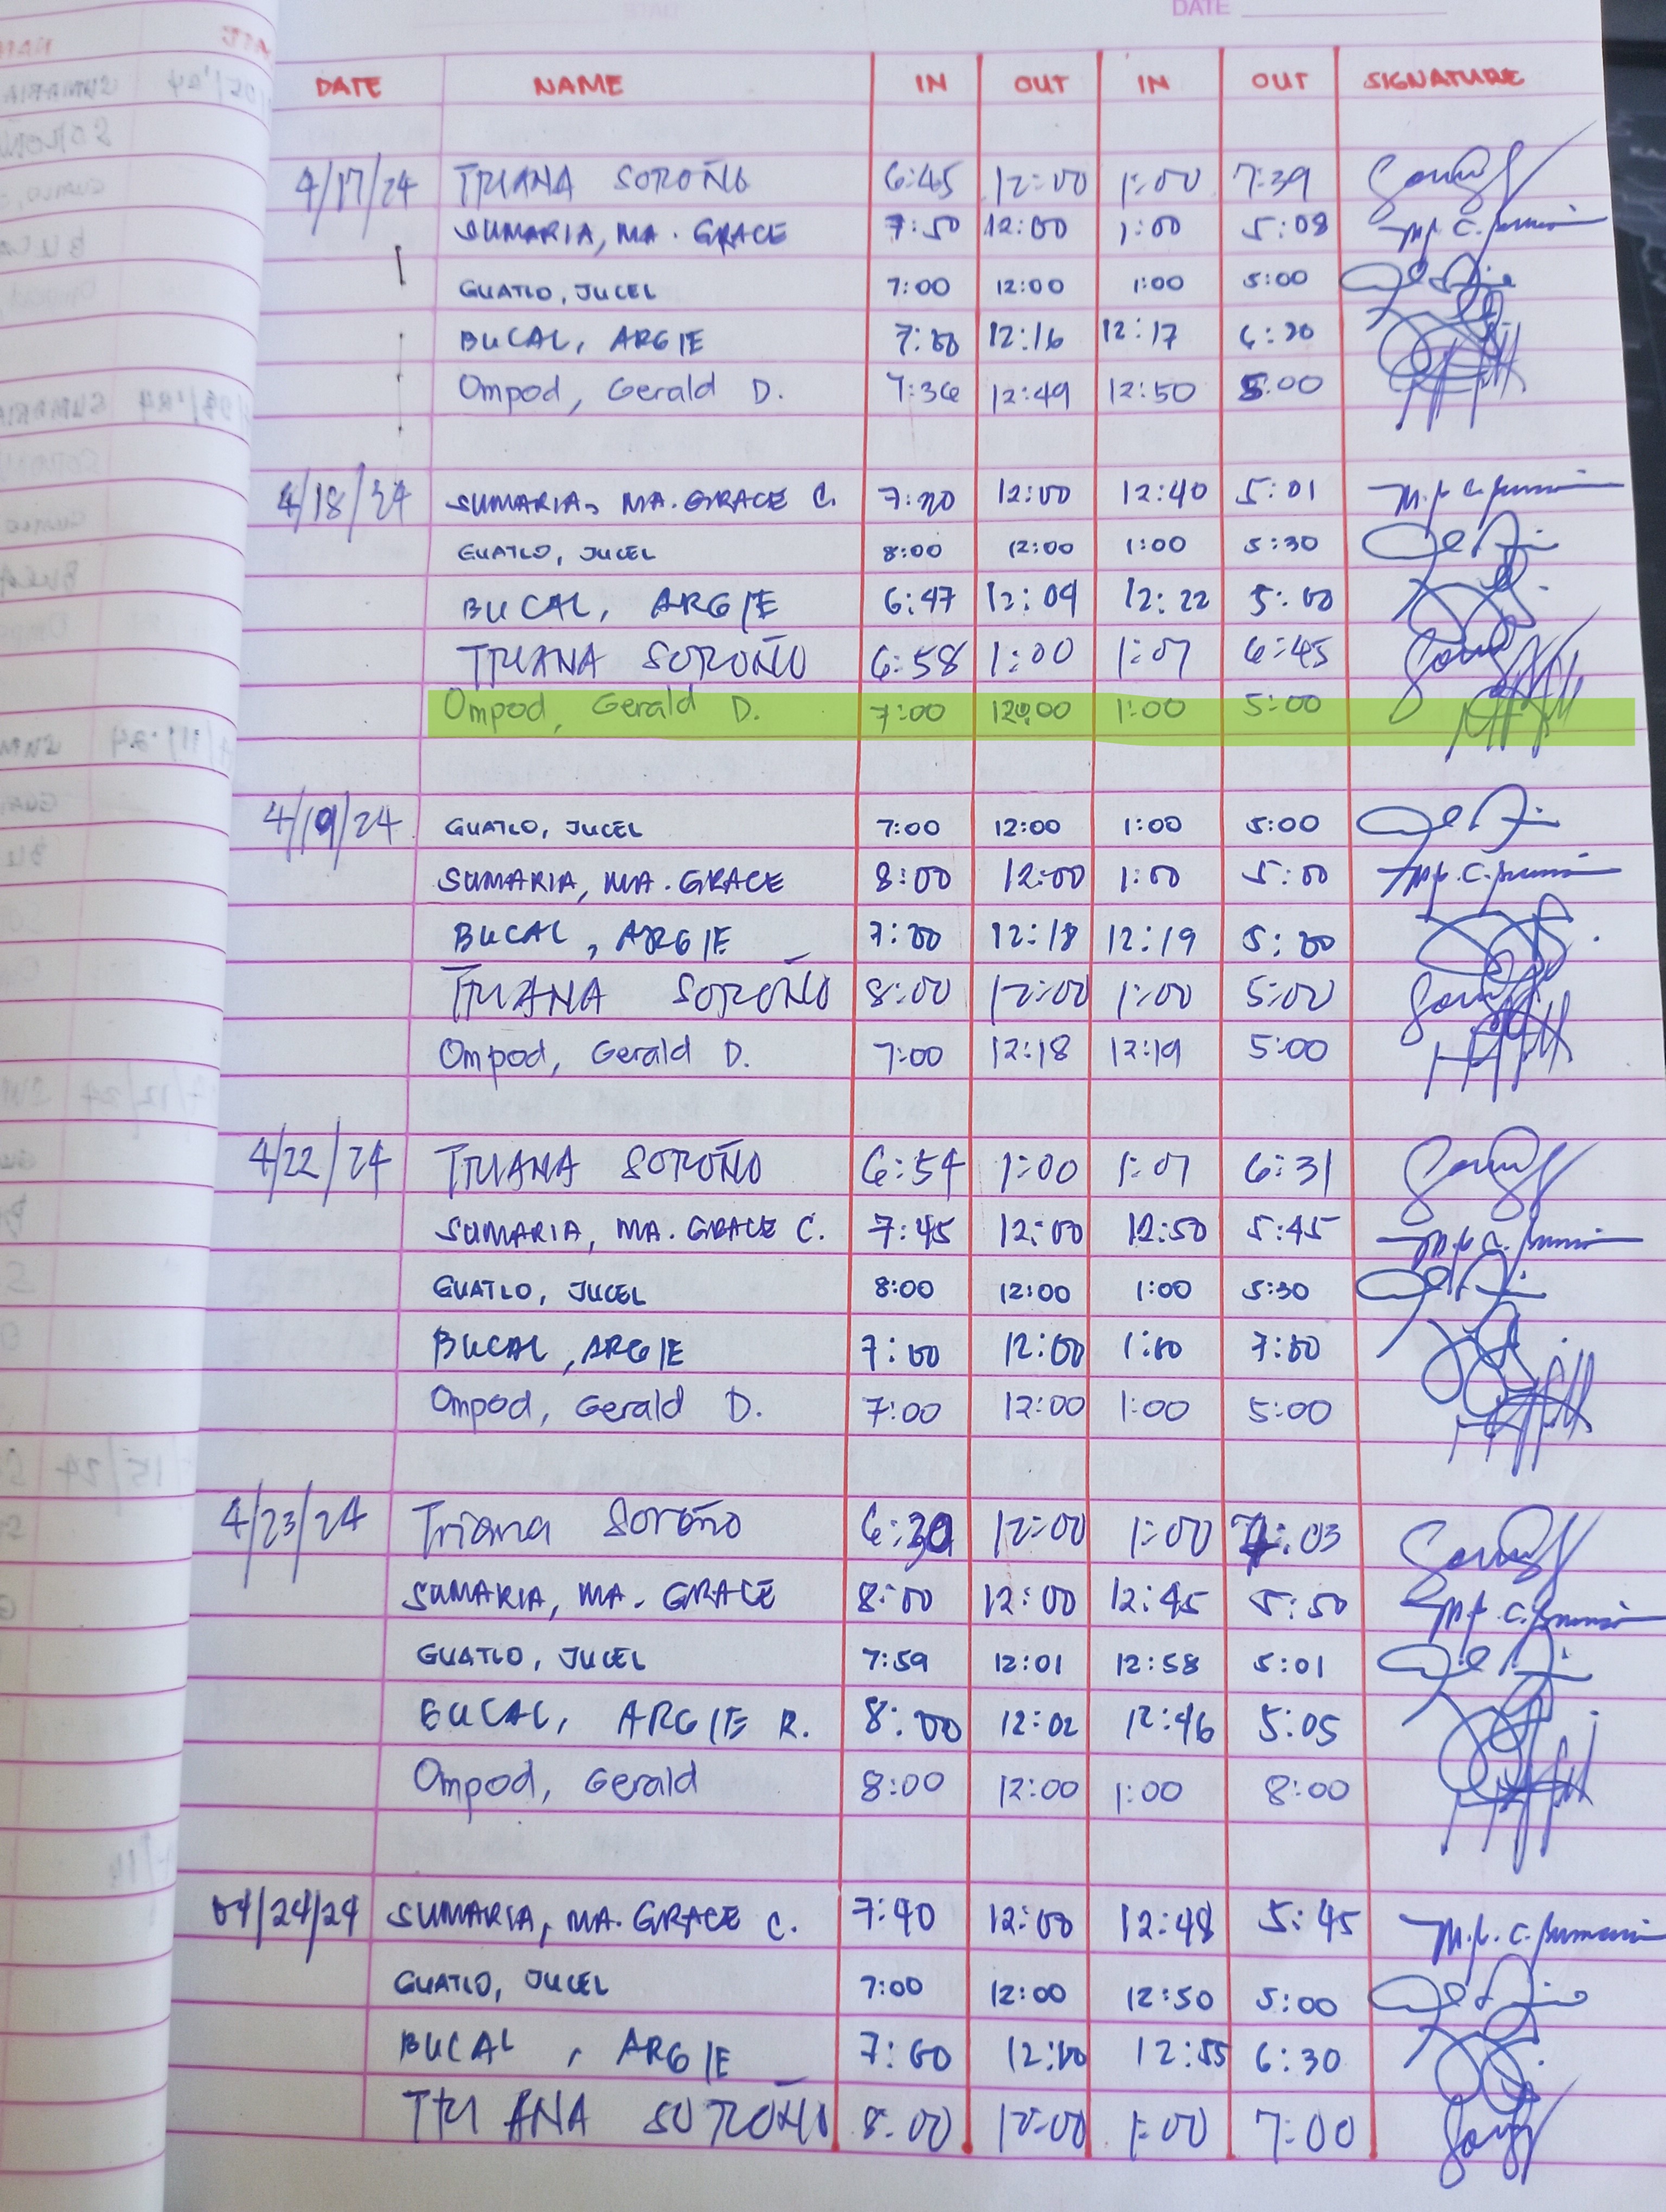 DATE
DATE NAME IN OUT IN OUT SIGNATURE
4/17/24 TRIANA SOROÑO 6:45 12:00 1:00 7:39
SUMARIA, MA. GRACE 7:50 12:00 1:00 5:08
GUATLO, JUCEL 7:00 12:00 1:00 5:00
BUCAL, ARGIE 7:00 12:16 12:17
Ompod, Gerald D. 7:36 12:49 12:50 5:00
4/18/24 SUMARIA, MA. GRACE C. 7:20 12:00 12:40 5:01
GUATLO, JUCEL 8:00 12:00 1:00 5:30
BUCAL, ARGIE 6:47 12:09 12:22 5:00
TRIANA SOROÑO 6:58 1:00 1:07 6:45
Ompod, Gerald D. 7:00 12:00 1:00 5:00
4/19/24 GUATLO, JUCEL 7:00 12:00 1:00 5:00
SUMARIA, MA. GRACE 8:00 12:00 1:00 5:00
BUCAL, ARGIE 7:00 12:18 12:19 5:00
TRIANA SOROÑO 8:00 12:00 1:00 5:00
Ompod, Gerald D. 7:00 12:18 12:19 5:00
4/22/24 TRIANA SOROÑO 6:54 1:00 1:07 6:31
SUMARIA, MA. GRACE C. 7:45 12:00 12:50 5:45
GUATLO, JUCEL 8:00 12:00 1:00 5:30
BUCAL, ARGIE 7:00 12:00 1:00 7:00
Ompod, Gerald D. 7:00 12:00 1:00 5:00
4/23/24 Triana Soroño 6:30 12:00 1:00 7:03
SUMARIA, MA. GRACE 8:00 12:00 12:45 5:50
GUATLO, JUCEL 7:59 12:01 12:58 5:01
BUCAL, ARGIE R. 8:00 12:02 12:46 5:05
Ompod, Gerald 8:00 12:00 1:00 8:00
04/24/24 SUMARIA, MA. GRACE C. 7:40 12:00 12:48 5:45
GUATLO, JUCEL 7:00 12:00 12:50 5:00
BUCAL, ARGIE 7:00 12:00 12:55 6:30
TRIANA SOROÑO 8:00 12:00 1:00 7:00